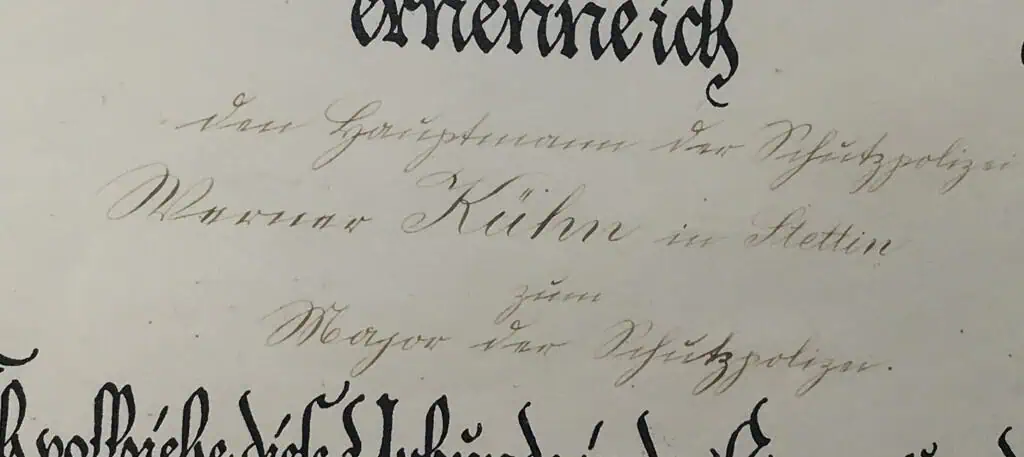 ernenne ich
den Hauptmann der Schutzpolizei
Werner Kühn in Stettin
zum
Major der Schutzpolizei.
Ich vollziehe diese Urkunde in der